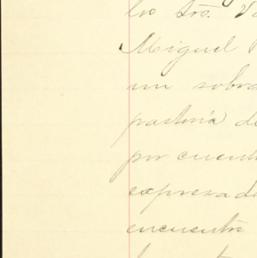 los tros. V
Miguel
un sobra
pastoría de
por cuent
expresad
encuentr